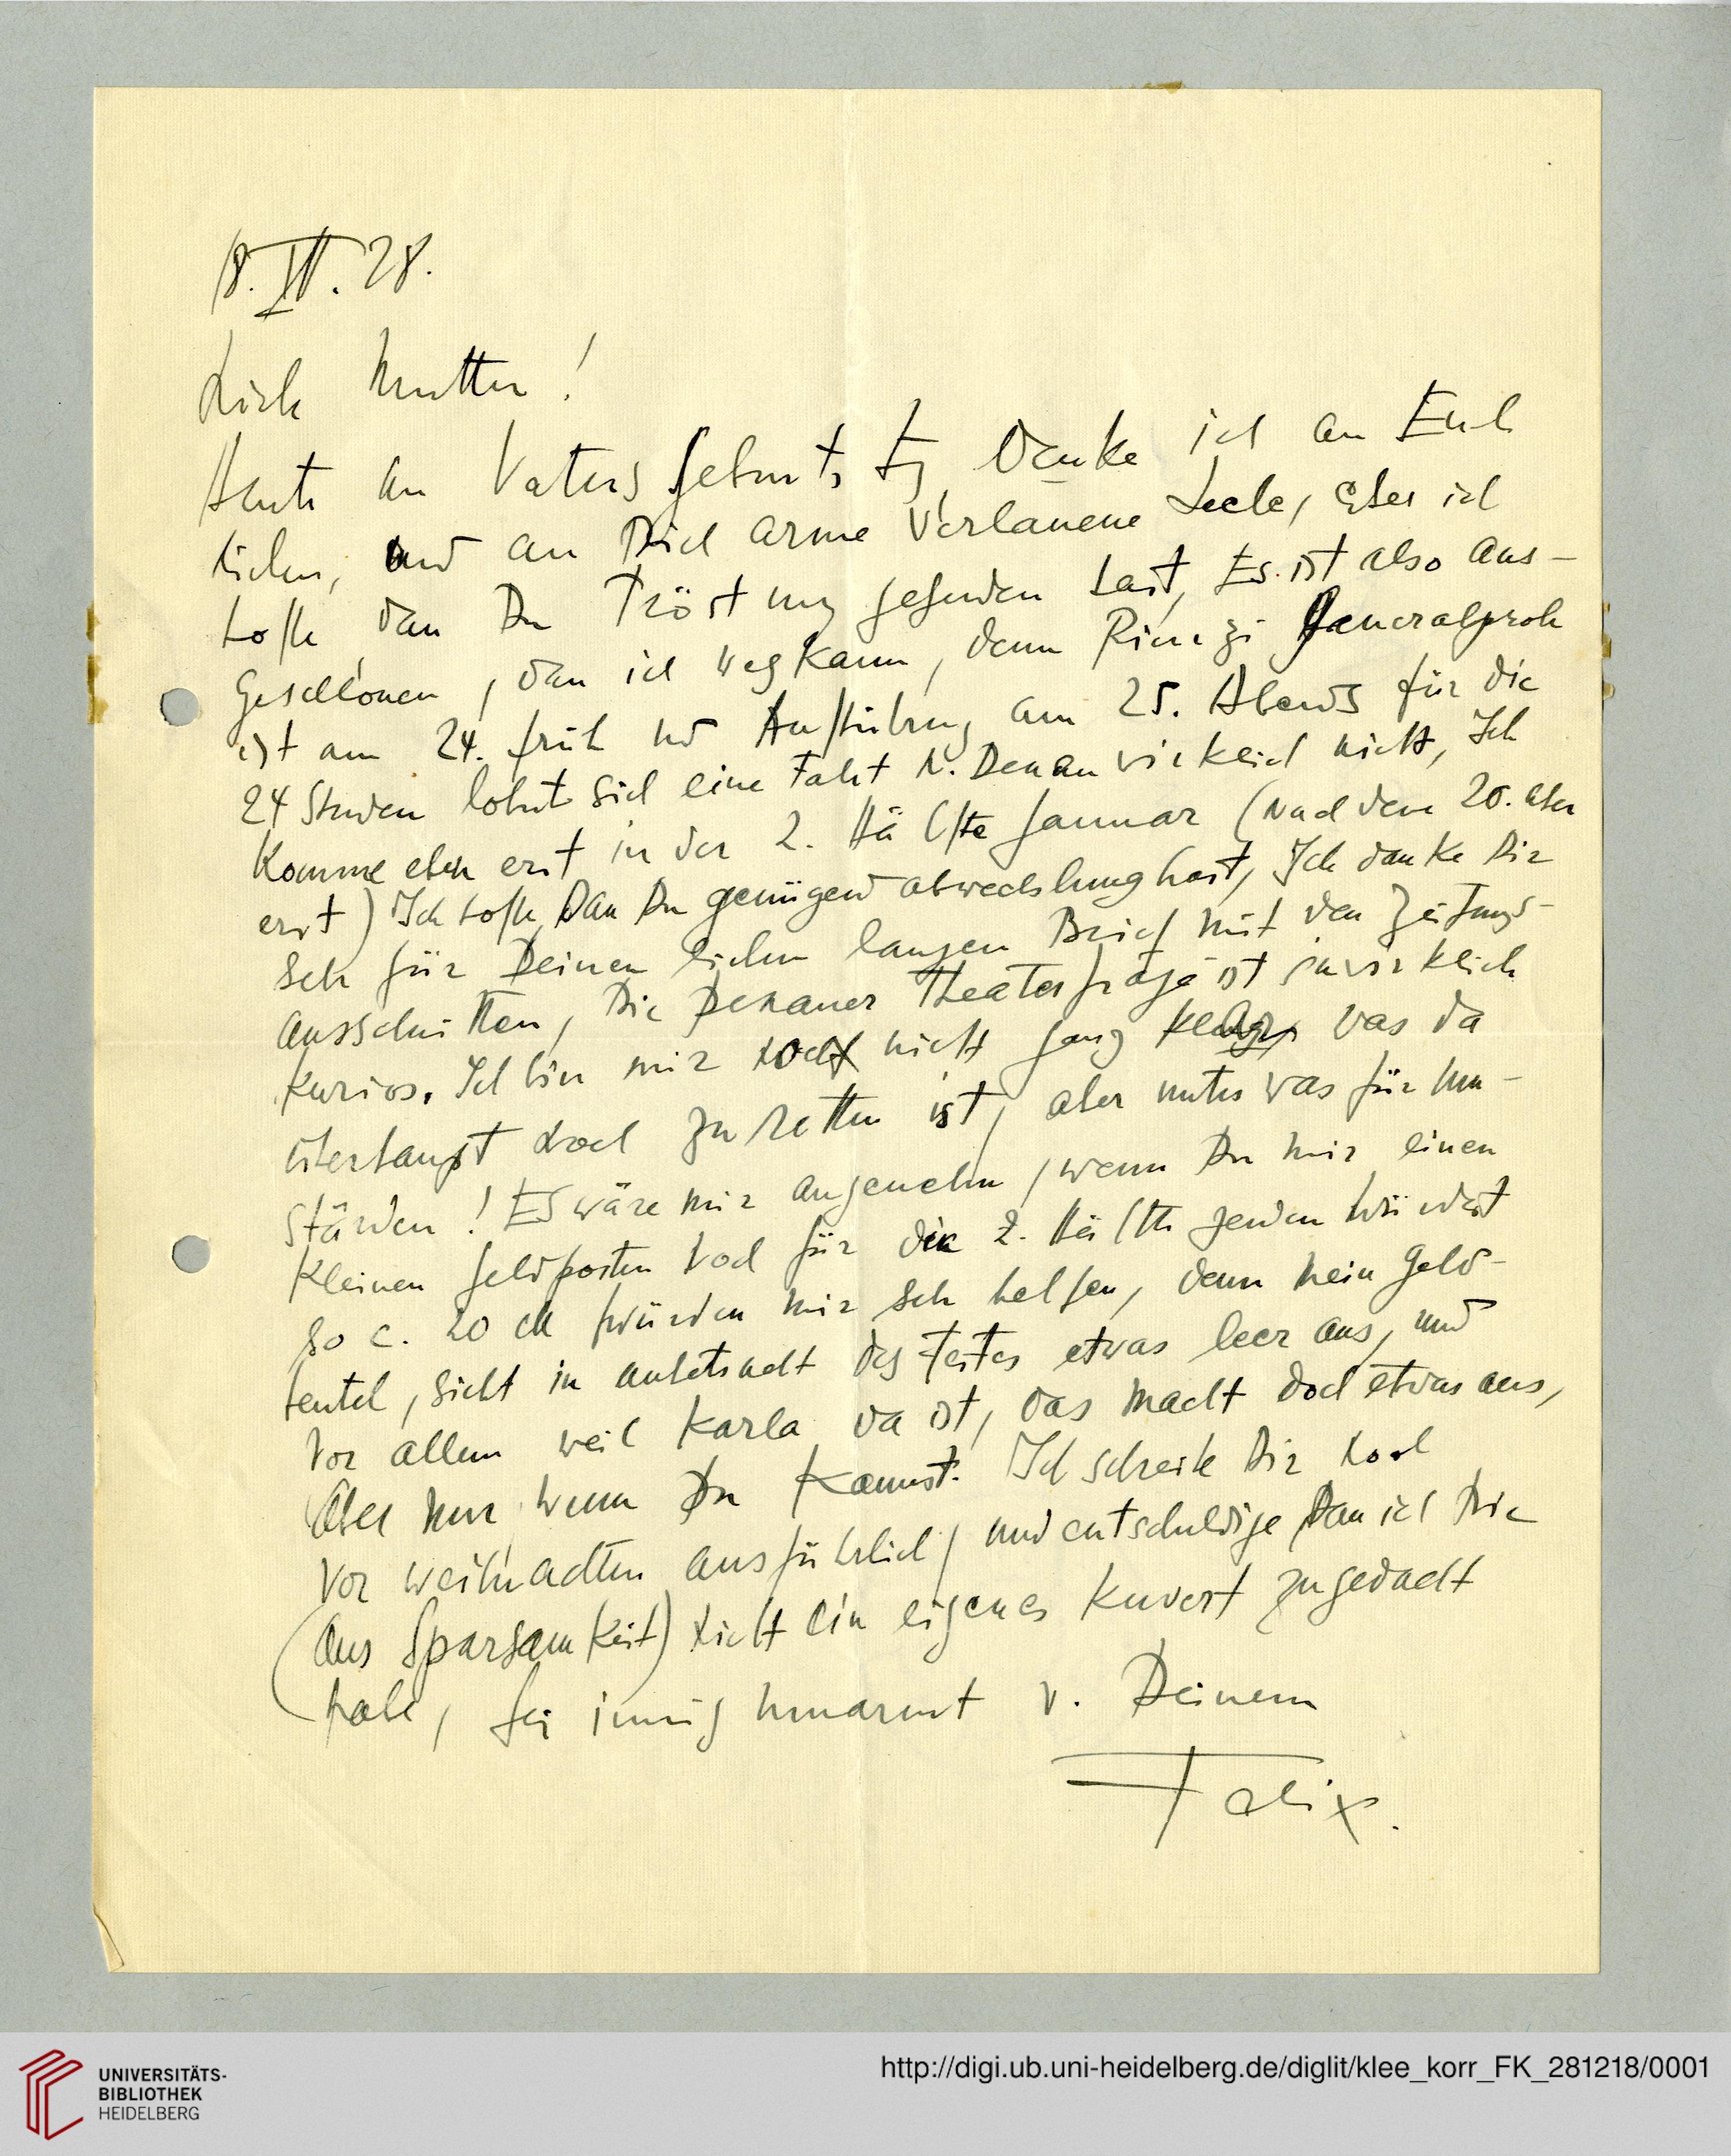 18. XII. 28.
Liebe Mutter!
Heute an Vaters Geburtstg denke ich an Euch
lieben, und an Dich arme verlassene Seele, aber ich
hoffe dass Du Tröstung gefunden hast, Es ist also aus-
geschlossen, dass ich weg kann, denn Rienzi Generalprobe
ist am 24. früh und Aufführung am 25. Abends für die
24 Stunden lohnt sich eine Fahrt n. Dessau wirklich nicht, Ich
komme eben erst in der 2. Hälfte Januar (nach dem 20. aber
erst) Ich hoffe, dass Du genügend abwechslung hast, Ich danke Dir
sehr für Deinen lieben langen Brief mit den Zeitungs-
ausschnitten, Die Dessauer Theaterfrage ist ja wirklich
kurios. Ich bin mir noch nicht ganz klar, was da
überhaupt noch zu retten ist, aber unter was für Um-
ständen! Es wäre mir angenehm, wenn Du mir einen
kleinen Geldposten noch für die 2. Hälfte senden würdest
so c. 20 M würden mir sehr helfen, denn mein Geld-
beutel, sieht in anbetracht des Festes etwas leer aus, und
vor allem weil Karla da ist, das macht doch etwas aus,
Aber nur wenn Du kannst. Ich schreibe Dir noch
vor weihnachten ausführlich, und entschuldige, dass ich Dir
(aus Sparsamkeit) nicht ein eigenes Kuvert zugedacht
habe, sei innig umarmt v. Deinem
Felix.
UNIVERSITÄTS-
BIBLIOTHEK
HEIDELBERG
http://digi.ub.uni-heidelberg.de/diglit/klee_korr_FK_281218/0001